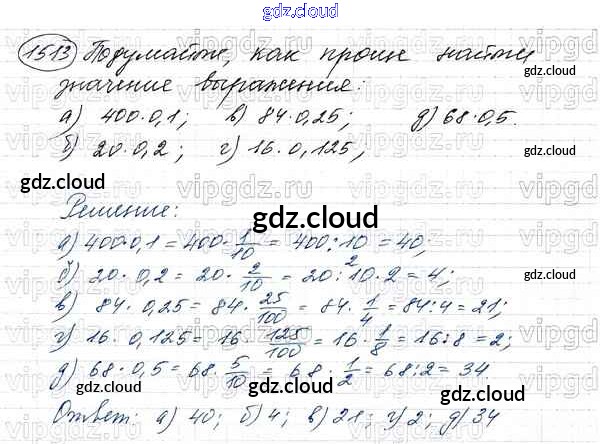 gdz.cloud
1513 Подумайте, как проще найти
gdz.cloud
значение выражения:
а) 400·0,1; в) 84·0,25; д) 68·0,5.
б) 20·0,2; г) 16·0,125;
gdz.cloud gdz.cloud
Решение:
gdz.cloud
а) 400·0,1 = 400·1/10 = 400:10 = 40;
б) 20·0,2 = 20·2/10 = 20:10·2 = 4;
в) 84·0,25 = 84·25/100 = 84·1/4 = 84:4 = 21;
г) 16·0,125 = 16·125/100 = 16·1/8 = 16:8 = 2;
д) 68·0,5 = 68·5/10 = 68·1/2 = 68:2 = 34
gdz.cloud gdz.cloud
Ответ: а) 40; б) 4; в) 21; г) 2; д) 34
gdz.cloud